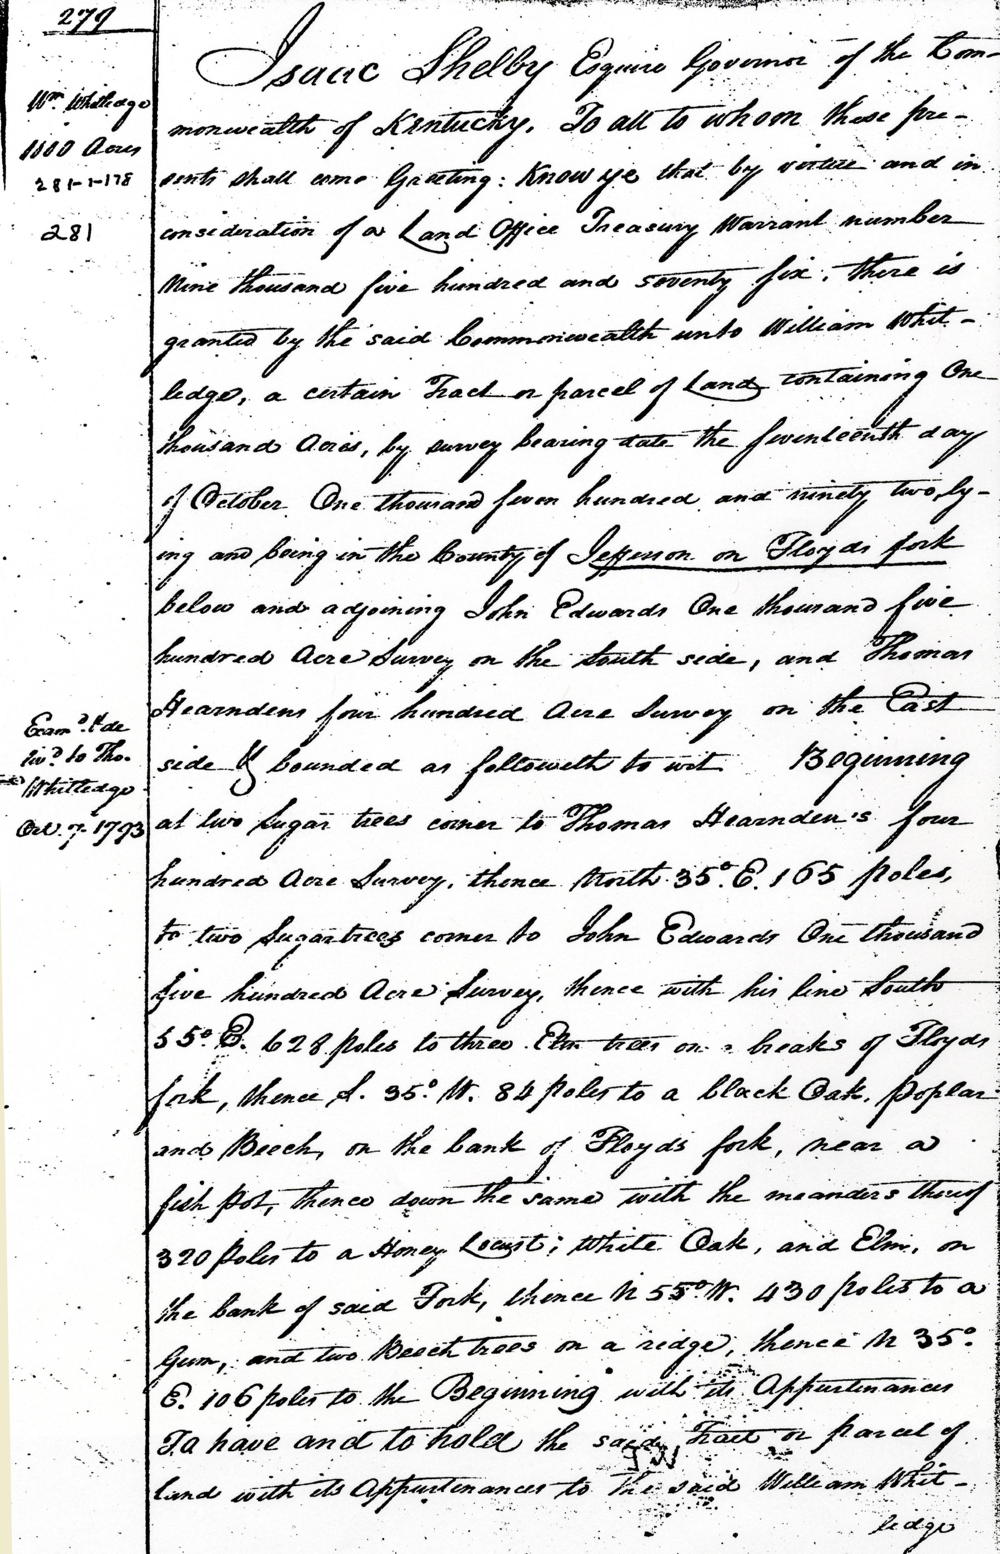 279
Wm. Whitledge
1000 Acres
281-1-178
281
Isaac Shelby Esquire Governor of the Com-
monwealth of Kentucky, To all to whom these pre-
sents shall come Greeting: Know ye that by virtue and in
consideration of a Land Office Treasury Warrant number
Nine thousand five hundred and seventy six, there is
granted by the said Commonwealth unto William Whit-
ledge, a certain Tract or parcel of Land containing One
thousand Acres, by survey bearing date the seventeenth day
of October One thousand seven hundred and ninety two, ly-
ing and being in the County of Jefferson on Floyds fork
below and adjoining John Edwards One thousand five
hundred Acre Survey on the South side, and Thomas
Hearndens four hundred Acre Survey on the East
side & bounded as followeth to wit Beginning
at two Sugar trees corner to Thomas Hearnden's four
hundred Acre Survey, thence North 35° E. 165 poles,
to two Sugartrees corner to John Edwards One thousand
five hundred Acre Survey, thence with his line South
55° E. 628 poles to three Elm trees on a breaks of Floyds
fork, thence S. 35° W. 84 poles to a black Oak, poplar
and Beech, on the bank of Floyds fork, near a
fish pot, thence down the same with the meanders thereof
320 poles to a Honey Locust; White Oak, and Elm, on
the bank of said Fork, thence N 55° W. 430 poles to a
Gum, and two Beech trees on a ridge, thence N 35°
E. 106 poles to the Beginning with its Appurtenances
To have and to hold the said Tract or parcel of
land with its Appurtenances to the said William Whit-
ledge
Exam.d & de
liv.d to Tho.
Whitledge
Oct. 7th 1793